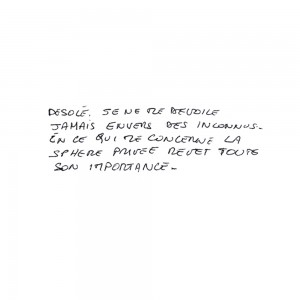 DESOLÉ. JE NE ME DEVOILE
JAMAIS ENVERS DES INCONNUS_
EN CE QUI ME CONCERNE LA
SPHERE PRIVEE REVET TOUTE
SON IMPORTANCE_